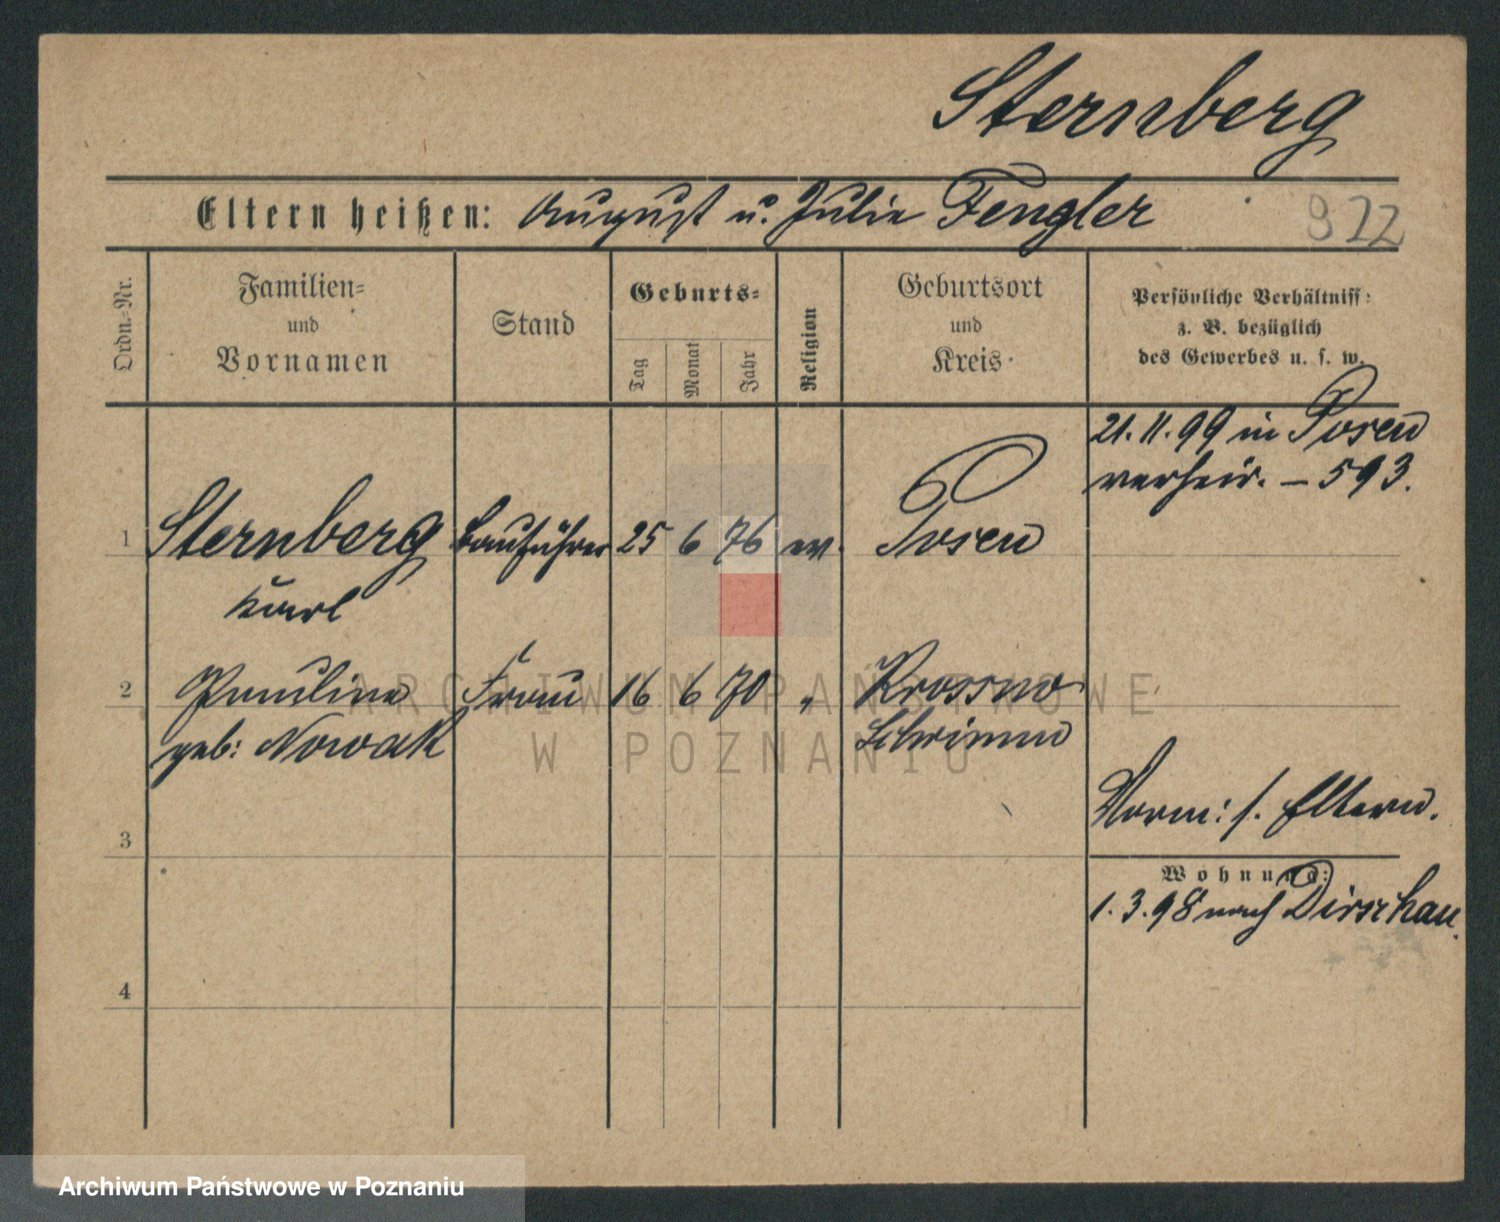 Sternberg
Eltern heißen: August u. Julie Fengler
922
Ordn.-Nr.
Familien-
und
Vornamen
Stand
Geburts-
Tag
Monat
Jahr
Religion
Geburtsort
und
Kreis
Persönliche Verhältniss:
z. B. bezüglich
des Gewerbes u. s. w.
21.11.99 in Posen
verheir. – 593.
1 Sternberg Bauführer 25 6 76 ev. Posen
Karl
2 Pauline Frau 16 6 70 " Krossno
geb: Nowak Schrimm
3
Vorm: s. Eltern.
Wohnung:
1.3.98 nach Dirschau.
4
ARCHIWUM PAŃSTWOWE
W POZNANIU
Archiwum Państwowe w Poznaniu